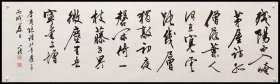 殘陽西入崦
茅屋訪孤
僧落葉人
何在寒雲
路幾層
獨敲初夜
磬閑倚一
枝藤世界
微塵里吾
寧愛與憎
李商隱詩北青蘿
丙戌夏